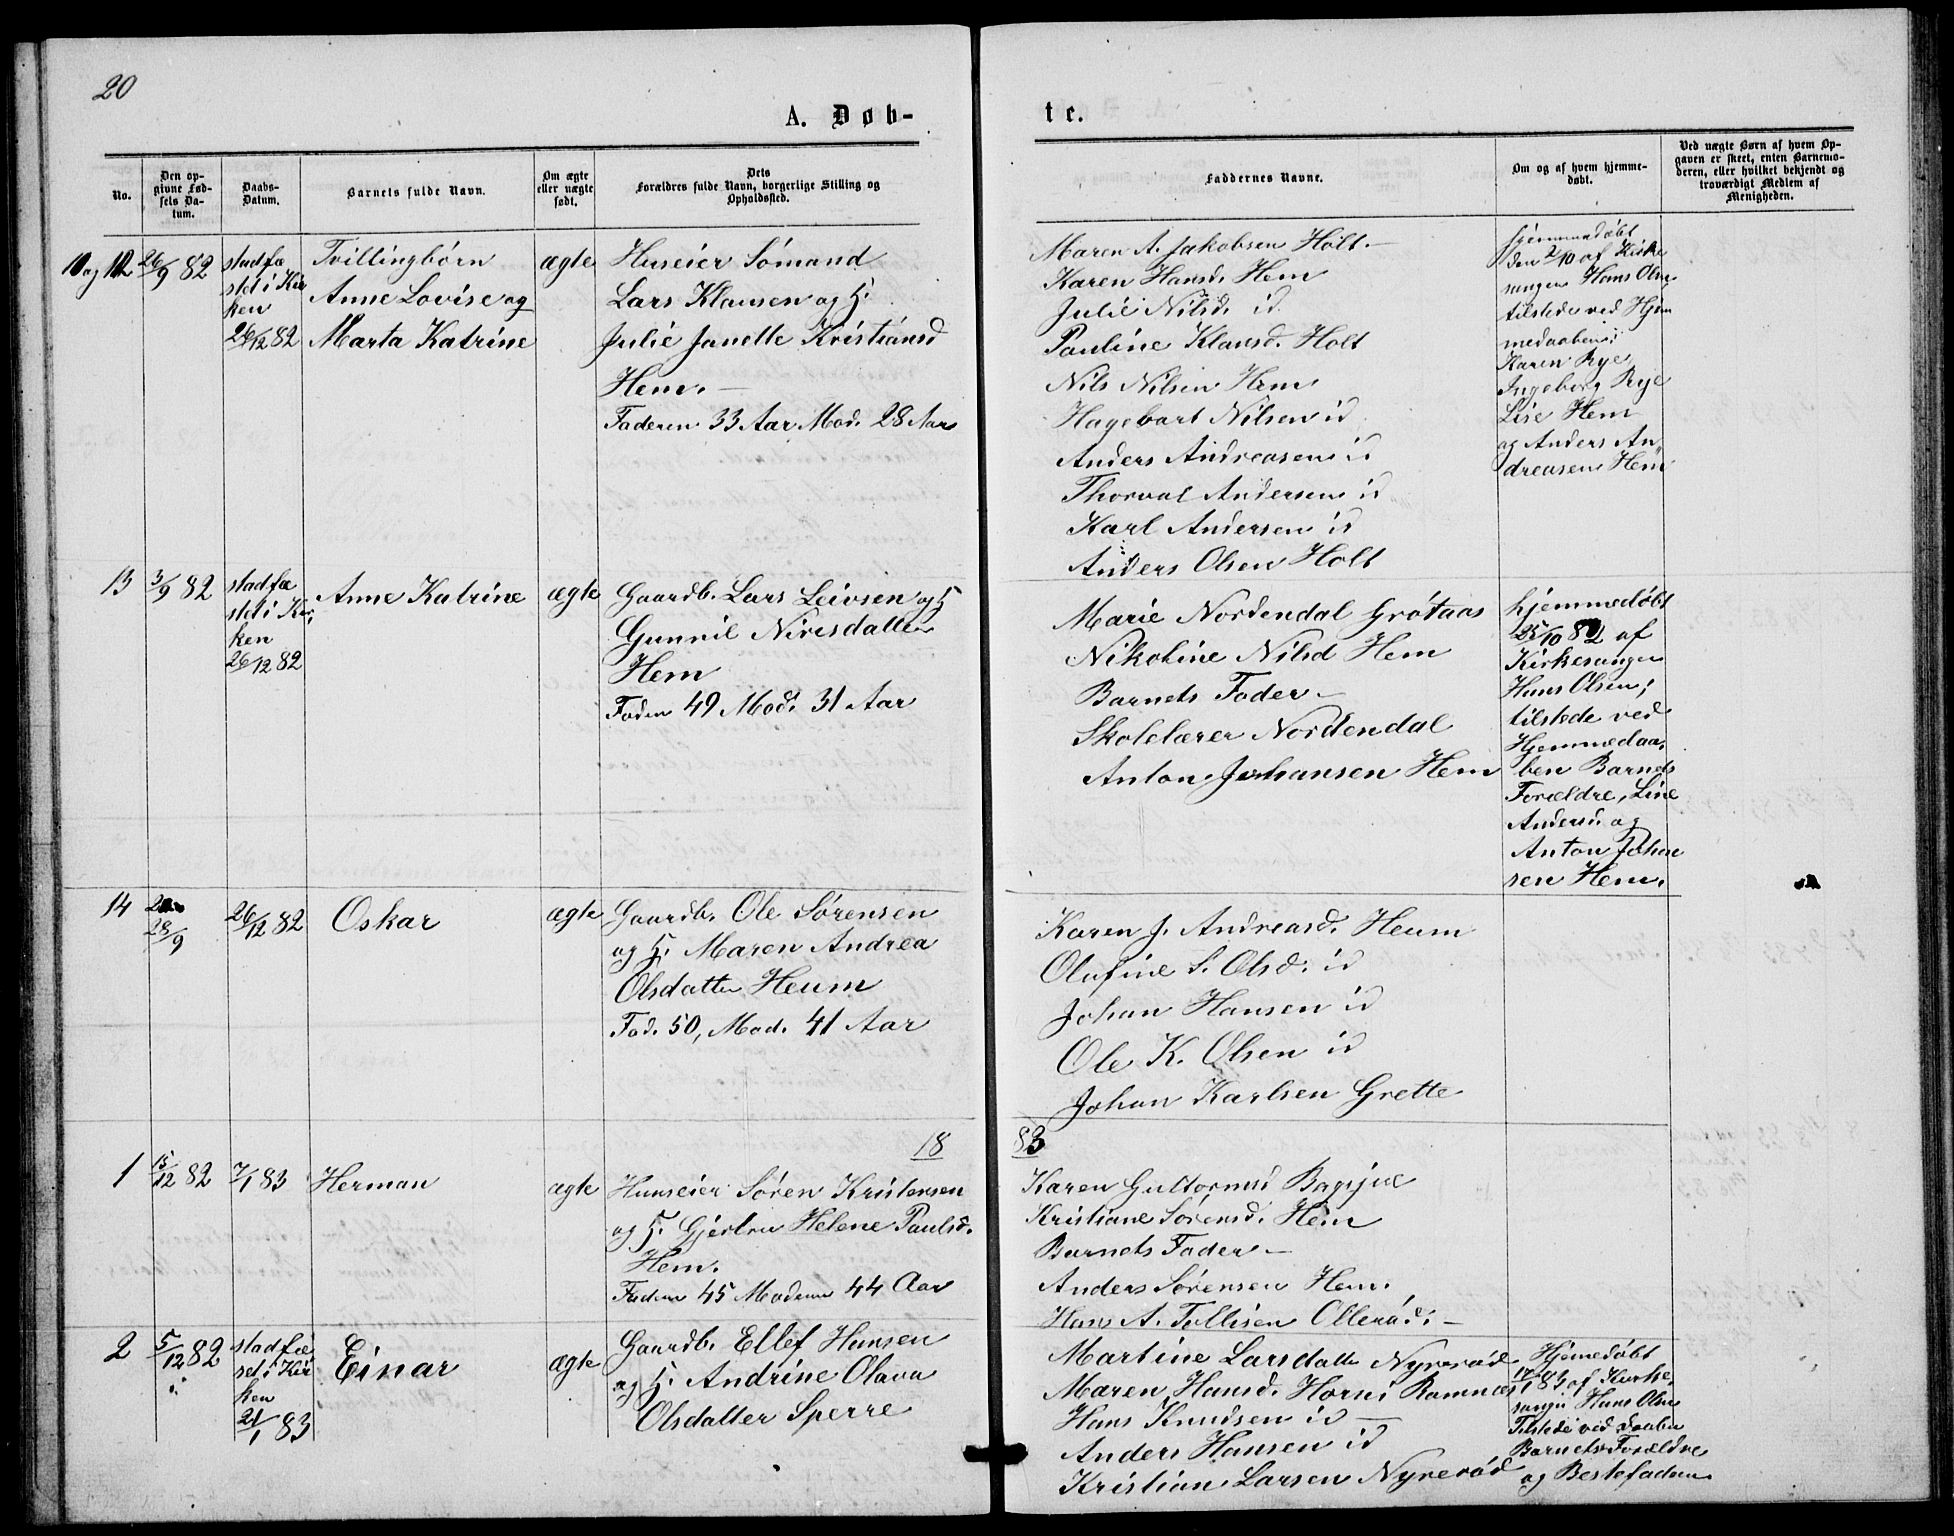 20
A. Døb-
te.
No.
Den op-
givne Fød-
sels Da-
tum.
Daabs-
Datum.
Barnets fulde Navn.
Om ægte
eller uægte
født.
Dets
Forældres fulde Navn, borgerlige Stilling og
Opholdssted.
Faddernes Navne.
Om og af hvem hjemme-
døbt.
Ved uægte Børn af hvem Op-
gaven er skeet, enten Barnemo-
deren, eller hvilket bekjendt og
troværdigt Medlem af
Menigheden.
11 og 12
26/9 82
stadfæ
stet i Kir
ken
26/12 82
Tvillingbørn
Anne Lovise og
Marta Katrine
ægte
Huseier Sömand
Lars Klausen og H.
Julie Janette Kristiansd
Hem. —
Faderen 33 Aar Mod. 28 Aar
Maren A. Jakobsen Holt —
Karen Hansd. Hem
Julie Nilsd. id
Pauline Klausd. Holt
Nils Nilsen Hem
Hagebart Nilsen id
Anders Andreasen id
Thorval Andersen id
Karl Andersen id
Anders Olsen Holt
hjemmedøbt
den 2/10 af Kirke
sanger Hans Olsen
tilstede ved Hjem
medaaben:
Karen Rye
Ingeborg Rye
Lise Hem
og Anders An
dreasen Hem
13
3/9 82
stadfæ
stet i Kir,
ken
26/12 82
Anne Katrine
ægte
Gaardb. Lars Leivsen og H
Gunnil Nirisdatter
Hem
Faden 49 Mod. 31 Aar
Marie Nordendal Grótaas
Nikoline Nilsd Hem
Barnets Fader —
Skolelærer Nordendal
Anton Johansen Hem
hjemmedøbt
25/10 82 af
Kirkesanger
Hans Olsen;
tilstede ved
Hjemmedaa,
ben Barnets
Forældre, Line
Andersd. og
Anton Johan
sen Hem.
14
28/9
26/12 82
Oskar
ægte
Gaardb. Ole Sørensen
og H. Maren Andrea
Olsdatter Heum
Fad. 50, Mod. 41 Aar
Karen J. Andreasd. Heum
Olufine S. Olsd. id
Johan Hansen id
Ole K. Olsen id
Johan Karlsen Grette
18
83
1
15/12 82
7/1 83
Herman
ægte
Huuseier Sören Kristensen
og H. Gjertru Helene Paulsd.
Hem.
Faderen 45 Moderen 44 Aar
Karen Guttormsd
Kristiane Sörensd. Hem
Barnets Fader —
Anders Sørensen Hem.
Hans A. Tollisen Olleröd. —
2
5/12 82
stadfæ
set i Kir
ken
21/1 83
Einar
ægte
Gaardb. Ellef Hansen
og H. Andrine Olava
Olsdatter Sperre
Martine Larsdatter Nyreröd
Maren Hansd. Hornes Ramnæs
Hans Knudsen id —
Anders Hansen id
Kristian Larsen Nyreröd
Hjemedøbt
83 af Kirke,
sanger Hans Olsen
Tilstede ved Daaben
Barnets Forældre
og Bestefaderen